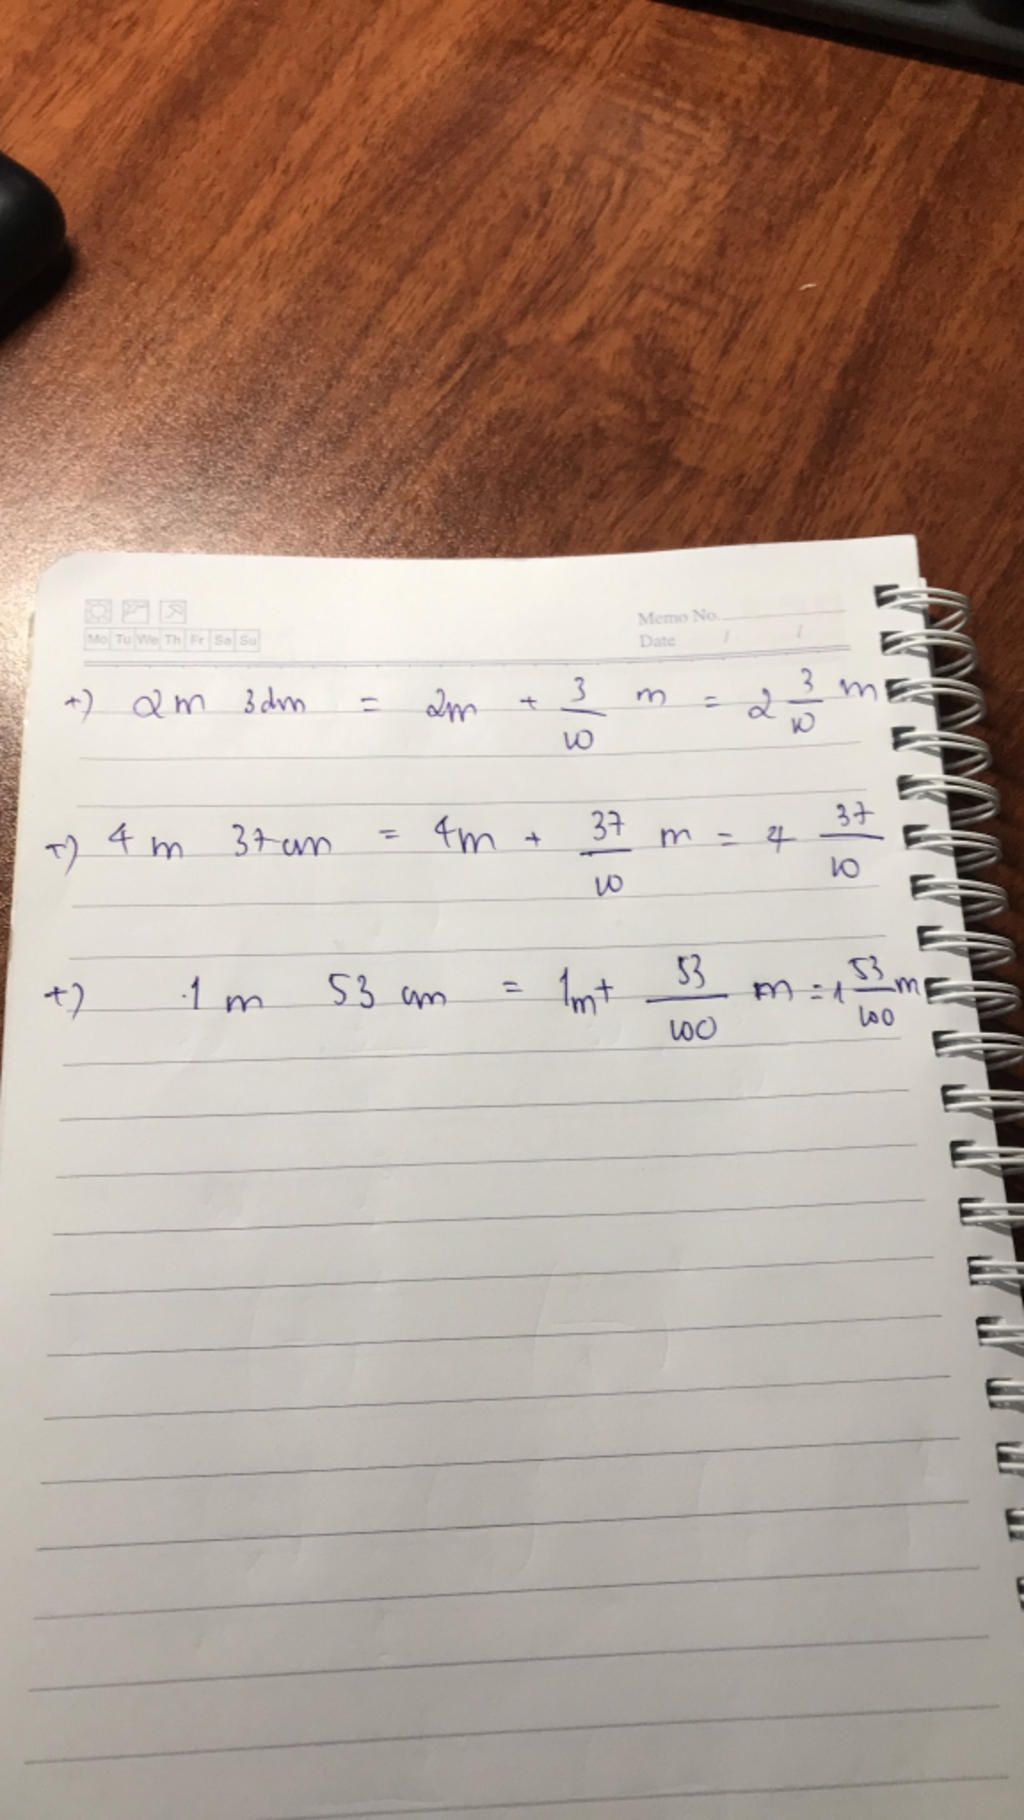 Memo No.
Mo Tu We Th Fr Sa Su
Date / /
+) 2m 3dm = 2m + 3/10 m = 2 3/10 m
+) 4m 37cm = 4m + 37/10 m = 4 37/10
+) 1m 53 cm = 1m + 53/100 m = 1 53/100 m